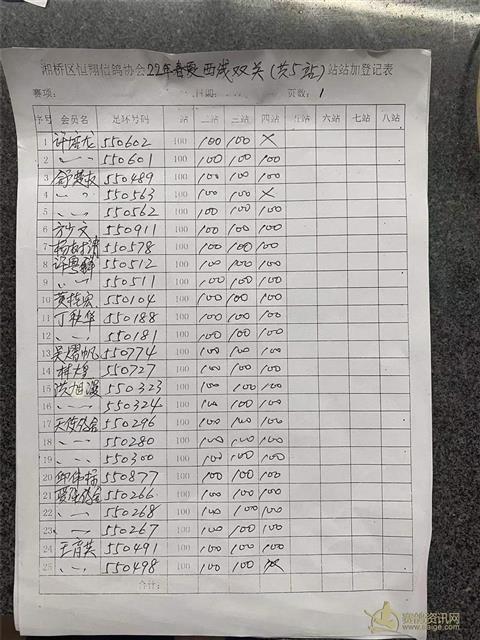 湘桥区恒翔信鸽协会22年春季西线双关(共5站)站站加登记表
赛项: 日期: 页数:1
序号 会员名 足环号码 一站 二站 三站 四站 五站 六站 七站 八站
1 550602 100 100 100 ×
2 〃 550601 100 100 100 100
3 550489 100 100 100 100
4 〃 550563 100 100 100 ×
5 〃 550562 100 100 100 100
6 方少文 550911 100 100 100 100
7 550578 100 100 100 100
8 550512 100 100 100 100
9 〃 550511 100 100 100 100
10 550104 100 100 100 100
11 丁秋华 550188 100 100 100 100
12 〃 550181 100 100 100 100
13 550774 100 100 100 100
14 550727 100 100 100 100
15 550323 100 100 100 100
16 〃 550324 100 100 100 100
17 550296 100 100 100 100
18 〃 550280 100 100 100 100
19 〃 550300 100 100 100 100
20 550877 100 100 100 100
21 550266 100 100 100 100
22 〃 550268 100 100 100 100
23 〃 550267 100 100 100 100
24 550491 100 100 100 100
25 〃 550498 100 100 100 ×
合计:
赛鸽资讯网